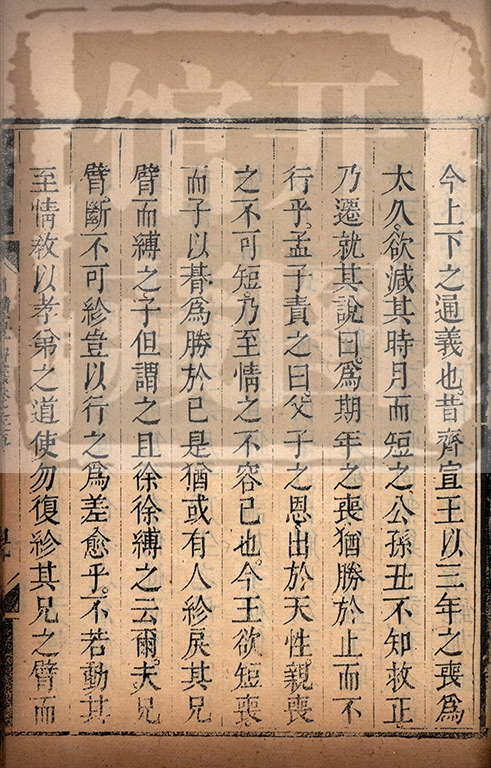 今上下之通義也。昔齊宣王以三年之喪爲
太久、欲減其時月而短之、公孫丑不知救正
乃遷就其說曰。爲期年之喪猶勝於止而不
行乎。孟子責之曰。父子之恩、出於天性、親喪
之不可短、乃至情之不容已也。今王欲短喪
而子以朞爲勝於已是猶或有人紾戾其兄
臂而縛之子但謂之且徐徐縛之云爾。夫兄
臂。斷不可紾豈以行之爲差愈乎。不若動其
至情敎以孝弟之道使勿復紾其兄之臂而